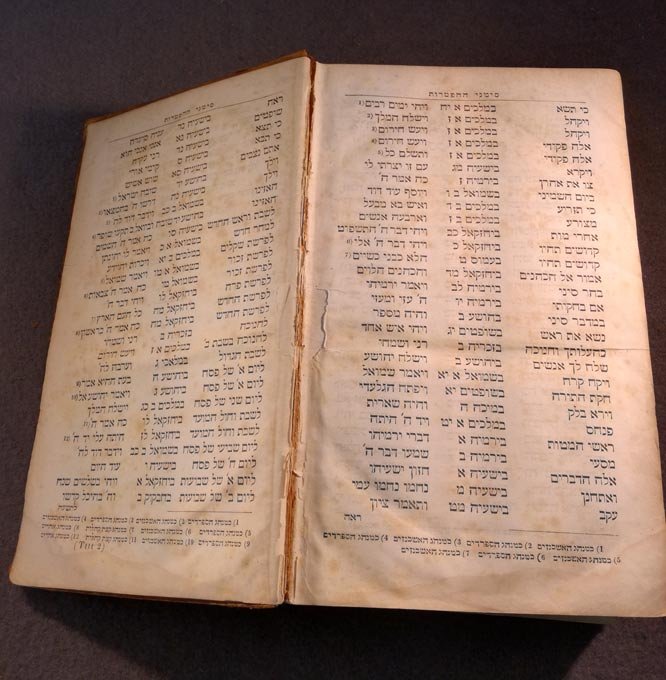 סימני ההפטרות
כי תשא במלכים א יח ויהי ימים רבים 1)
ויקהל במלכים א ז וישלח המלך 2)
ויקהל במלכים א ז ויעש חירום 3)
אלה פקודי במלכים א ז ויעש חירום 4)
אלה פקודי במלכים א ז ותשלם כל 5)
ויקרא בישעיה מג עם זו יצרתי לי
צו את אהרן בירמיה ז כה אמר ה'
ביום השמיני בשמואל ב ו ויוסף עוד דוד
כי תזריע במלכים ב ד ואיש בא מבעל
מצורע במלכים ב ז וארבעה אנשים
אחרי מות ביחזקאל כב ויהי דבר ה' התשפוט
קדושים תהיו ביחזקאל כ ויהי דבר ה' אלי 6)
קדושים תהיו בעמוס ט הלא כבני כשיים 7)
אמור אל הכהנים ביחזקאל מד והכהנים הלוים
בהר סיני בירמיה לב ויאמר ירמיהו
אם בחקותי בירמיה יז ה' עזי ומעזי
במדבר סיני בהושע ב והיה מספר
נשא את ראש בשופטים יג ויהי איש אחד
בהעלותך וחנוכה בזכריה ב רני ושמחי
שלח לך אנשים ביהושע ב וישלח יהושע
ויקח קרח בשמואל א יא ויאמר שמואל
חקת התורה בשופטים יא ויפתח הגלעדי
וירא בלק במיכה ה והיה שארית
פנחס במלכים א יט ויד ה' היתה
ראשי המטות בירמיה א דברי ירמיהו
מסעי בירמיה ב שמעו דבר ה'
אלה הדברים בישעיה א חזון ישעיהו
ואתחנן בישעיה מ נחמו נחמו עמי
עקב בישעיה מט ותאמר ציון
ראה
1) כמנהג האשכנזים 2) כמנהג הספרדים 3) כמנהג האשכנזים 4) כמנהג הספרדים
5) כמנהג האשכנזים 6) כמנהג הספרדים 7) כמנהג האשכנזים
סימני ההפטרות
ראה בישעיה נד עניה סוערה
שופטים בישעיה נא אנכי אנכי הוא
כי תצא בישעיה נד רני עקרה
כי תבא בישעיה ס קומי אורי
אתם נצבים בישעיה סא שוש אשיש
וילך בהושע יד שובה ישראל
האזינו
האזינו בשמואל ב כב וידבר דוד לה'
לשבת וראש החדש בישעיה סו כה אמר ה' השמים
למחר חדש בשמואל א כ ויאמר לו יהונתן
לפרשת שקלים במלכים ב
לפרשת זכור בשמואל א
לפרשת זכור בשמואל א
לפרשת פרה ביחזקאל לו ויהי דבר ה'
לפרשת החדש ביחזקאל מה כל העם הארץ
לפרשת החדש ביחזקאל מה כה אמר ה' בראשון
לחנוכה בזכריה ב רני ושמחי
לחנוכה בשבת ב' במלכים א ז ויעש חירום
לשבת הגדול במלאכי ג וערבה לה'
ליום א' של פסח ביהושע ה בעת ההיא אמר
ליום א' של פסח ביהושע ג ויאמר יהושע
ליום שני של פסח במלכים ב כג וישלח המלך
לשבת וחול המועד ביחזקאל לו כה אמר ה'
לשבת וחול המועד ביחזקאל לז היתה עלי יד ה'
ליום שביעי של פסח בשמואל ב כב וידבר דוד לה'
ליום ח' של פסח בישעיה י עוד היום
ליום א' של שבועות ביחזקאל א ויהי בשלשים שנה
ליום ב' של שבועות בחבקוק ב וה' בהיכל קדשו
1) כמנהג הספרדים 2) כמנהג האשכנזים 3) כמנהג הספרדים 4) כמנהג האשכנזים
5) כמנהג הספרדים
9) כמנהג הספרדים
(Tttt 2)